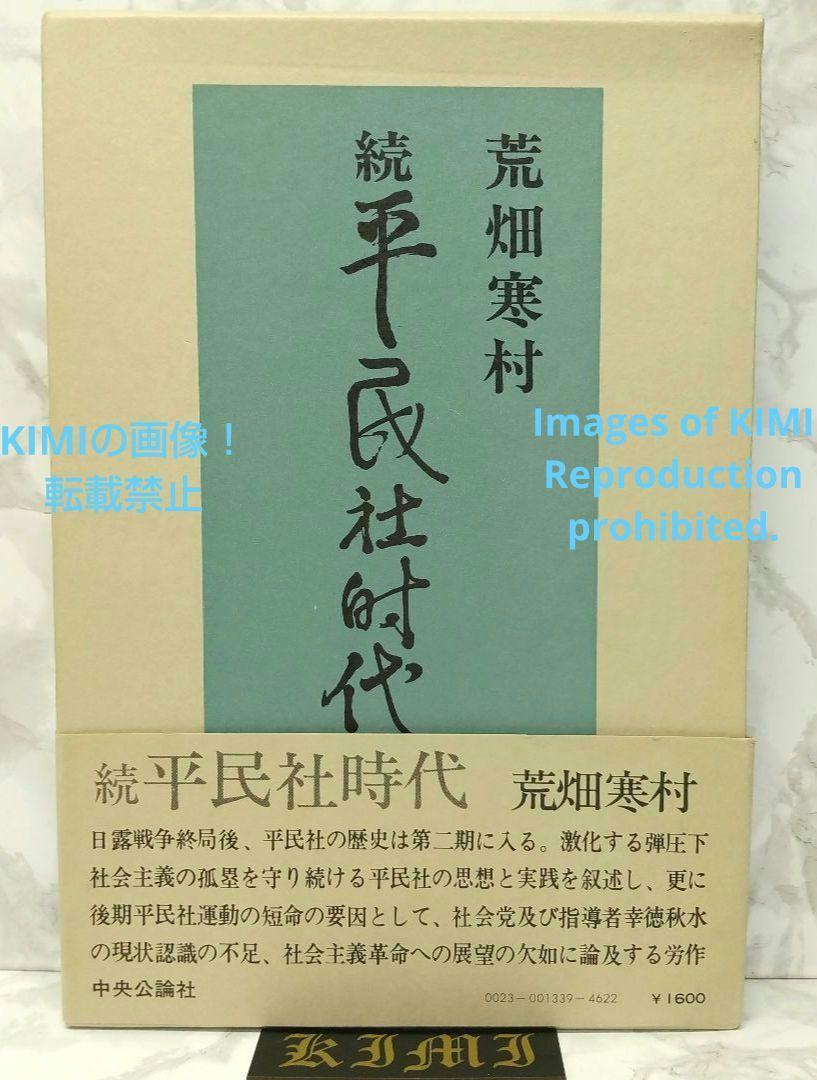 荒畑寒村
続 平民社时代
KIMIの画像！
転載禁止
Images of KIMI
Reproduction
prohibited.
続 平民社時代 荒畑寒村
日露戦争終局後、平民社の歴史は第二期に入る。激化する弾圧下
社会主義の孤塁を守り続ける平民社の思想と実践を叙述し、更に
後期平民社運動の短命の要因として、社会党及び指導者幸徳秋水
の現状認識の不足、社会主義革命への展望の欠如に論及する労作
中央公論社 0023-001339-4622 ￥1600
KIMI